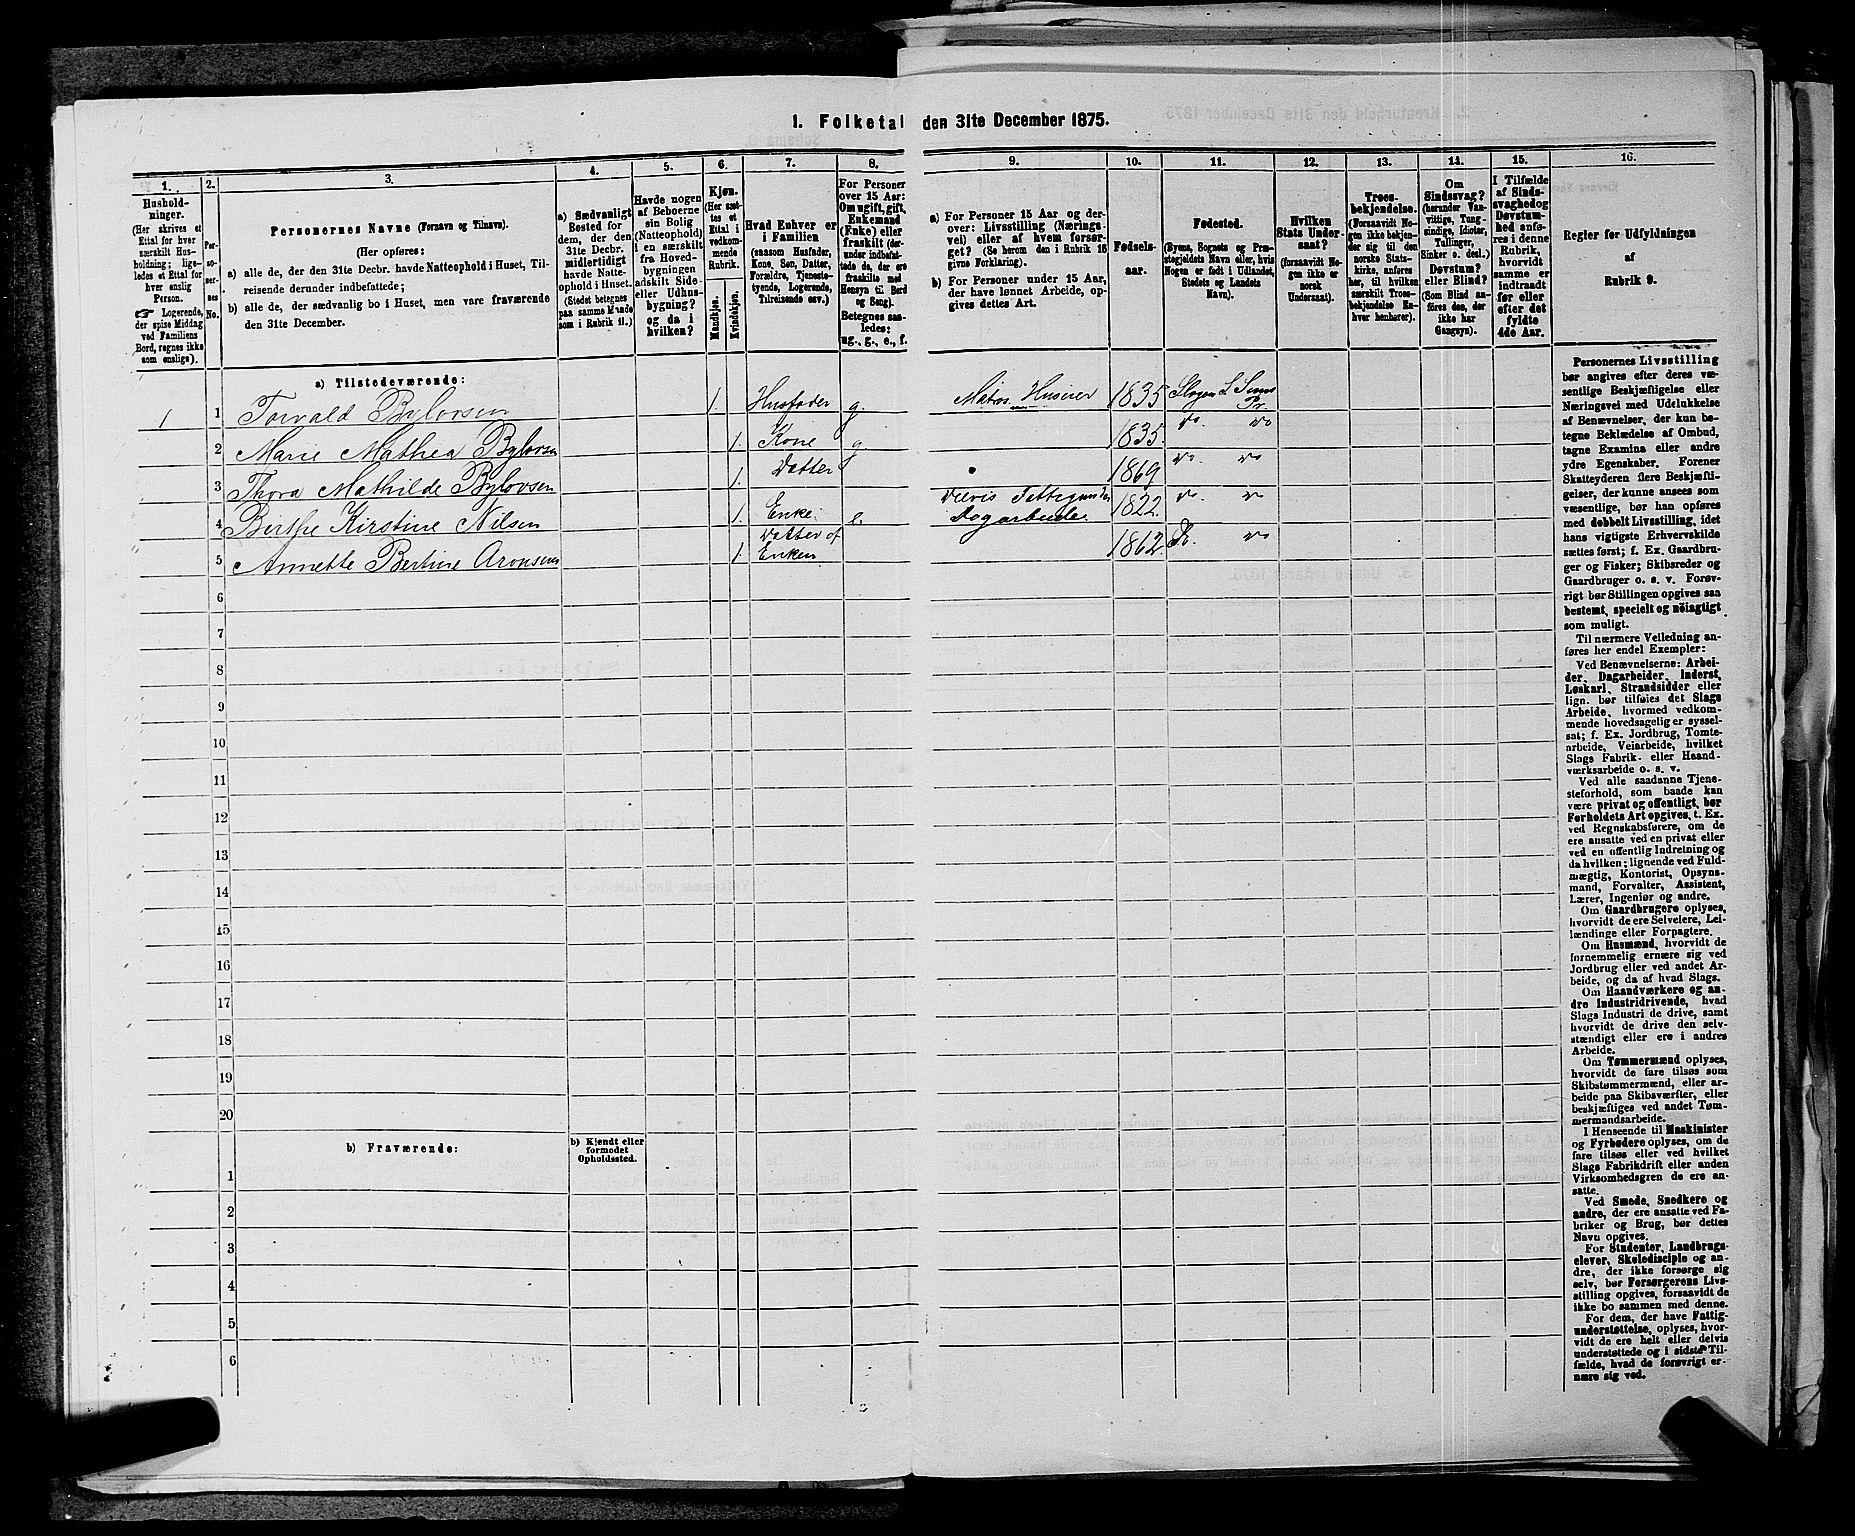 1. Folketal den 31te December 1875.
1.
2.
3.
4.
5.
6.
7.
8.
9.
10.
11.
12.
13.
14.
15.
16.
Husholdninger.
(Her skrives et
Ettal for hver
særskilt Husholdning; ligeledes
et Ettal for
hver enslig
Person.
☞ Logerende,
der spise Middag
ved Familiens
Bord, regnes ikke
som enslige).
Personernes No.
Personernes Navne (Fornavn og Tilnavn).
(Her opføres:
a) alle de, der den 31te Decbr. havde Natteophold i Huset, Tilreisende
derunder indbefattede;
b) alle de, der sædvanlig bo i Huset, men vare fraværende
den 31te December.
a) Sædvanligt
Bosted for
dem, der den
31te Decbr.
midlertidigt
havde Natteophold
i Huset.
(Stedet betegnes
paa samme Maade
som i Rubrik 11.)
Havde nogen
af Beboerne
sin Bolig
(Natteophold)
i en særskilt
fra Hovedbygningen
adskilt Side-
eller Udhusbygning?
og da i
hvilken?
Kjøn.
(Her sættes
et
Ettal i
vedkommende
Rubrik.
Mandkjøn.
Kvindekjøn.
Hvad Enhver er
i Familien
(saasom Husfader,
Kone, Søn, Datter,
Forældre, Tjenestetyende,
Logerende,
Tilreisende osv.)
For Personer
over 15 Aar:
Om ugift, gift,
Enkemand
(Enke) eller
fraskilt (derunder
indbefattede
de, der ere
fraskilte med
Hensyn til Bord
og Seng).
Betegnes saaledes:
ug., g., e., f.
a) For Personer 15 Aar og derover:
Livsstilling (Næringsvei)
eller af hvem forsørget?
(Se herom den i Rubrik 16
givne Forklaring).
b) For Personer under 15 Aar,
der have lønnet Arbeide, opgives
dettes Art.
Fødselsaar.
Fødested.
(Byens, Sognets og Præstegjeldets
Navn eller, hvis
Nogen er født i Udlandet,
Stedets og Landets
Navn).
Hvilken
Stats Undersaat?
(forsaavidt Nogen
ikke er
norsk
Undersaat).
Troesbekjendelse.
(Forsaavidt Nogen
ikke bekjender
sig til den
norske Statskirke,
anføres
her, til hvilken
særskilt Troesbekjendelse
Enhver
henhører).
Om
Sindssvag?
(herunder Vanvittige,
Tungsindige,
Idioter,
Tullinger,
Sinker o. desl.)
Døvstum?
eller Blind?
(Som Blind anføres
den, der
ikke har
Gangsyn).
I Tilfælde
af Sindssvaghed
og
Døvstumhed
anføres
i denne
Rubrik,
hvorvidt
samme er
indtraadt
før eller
efter det
fyldte
4de Aar.
Regler for Udfyldningen
af
Rubrik 9.
a) Tilstedeværende:
1 1 Torvald Bylovsen 1. Husfader g. Matos Husirer 1835 Slagen S Sems Pr.
2 Marie Mathea Bylovsen 1. Kone g 1835. do. do
3 Thora Mathilde Bylovsen 1. Datter 1869 do. do
4 Birthe Kirstine Nilsen 1. Enke e. Delvis Fattigunder Dagarbeide. 1822. do. do
5 Annette Bertine Aronsen 1. Datter af Enken 1862. do
6
7
8
9
10
11
12
13
14
15
16
17
18
19
20
b) Fraværende:
b) Kjendt eller
formodet
Opholdssted.
1
2
3
4
5
6
Personernes Livsstilling
bør angives efter deres væsentlige
Beskjæftigelse eller
Næringsvei med Udelukkelse
af Benævnelser, der kun betegne
Beklædelse af Ombud,
tagne Examina eller andre
ydre Egenskaber. Forener
Skatteyderen flere Beskjæftigelser,
der kunne ansees som
væsentlige, bør han opføres
med dobbelt Livsstilling, idet
hans vigtigste Erhvervskilde
sættes først; f. Ex. Gaardbruger
og Fisker; Skibsreder og
Gaardbruger o. s. v. Forøvrigt
bør Stillingen opgives saa
bestemt, specielt og nöiagtigt
som muligt.
Til nærmere Veiledning anføres
her endel Exempler:
Ved Benævnelserne: Arbeider,
Dagarbeider, Inderst,
Løskarl, Strandsidder eller
lign. bør tilføies det Slags
Arbeide, hvormed vedkommende
hovedsagelig er sysselsat;
f. Ex. Jordbrug, Tomtearbeide,
Veiarbeide, hvilket
Slags Fabrik- eller Haandværksarbeide
o. s. v.
Ved alle saadanne Tjenesteforhold,
som baade kan
være privat og offentligt, bør
Forholdets Art opgives, t. Ex.
ved Regnskabsførere, om de
ere ansatte ved en privat eller
ved en offentlig Indretning og
da hvilken; lignende ved Fuldmægtig,
Kontorist, Opsynsmand,
Forvalter, Assistent,
Lærer, Ingeniør og andre.
Om Gaardbrugere oplyses,
hvorvidt de ere Selveiere, Leilændinge
eller Forpagtere.
Om Husmænd, hvorvidt de
fornemmelig ernære sig ved
Jordbrug eller ved andet Arbeide,
og da af hvad Slags.
Om Haandværkere og andre
Industridrivende, hvad
Slags Industri de drive, samt
hvorvidt de drive den selvstændigt
eller ere i andres
Arbeide.
Om Tømmermænd oplyses,
hvorvidt de fare tilsøs som
Skibstømmermænd, eller arbeide
paa Skibsværfter, eller
beskjæftiges ved andet Tømmermandsarbeide.
I Henseende til Maskinister
og Fyrbødere oplyses, om de
fare tilsøs eller ved hvilket
Slags Fabrikdrift eller anden
Virksomhedsgren de ere ansatte.
Ved Smede, Snedkere og
andre, der ere ansatte ved Fabriker
og Brug, bør dettes
Navn opgives.
For Studenter, Landbrugselever,
Skoledisciple og andre,
der ikke forsørge sig
selv, bør Forsørgerens Livsstilling
opgives, forsaavidt de
ikke bo sammen med denne.
For dem, der have Fattigunderstøttelse,
oplyses, hvorvidt
de ere helt eller delvis
understøttede og i sidste Tilfælde,
hvad de forøvrigt ernære
sig ved.